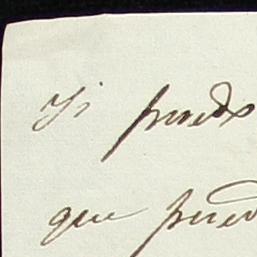 Si puedo
que pued